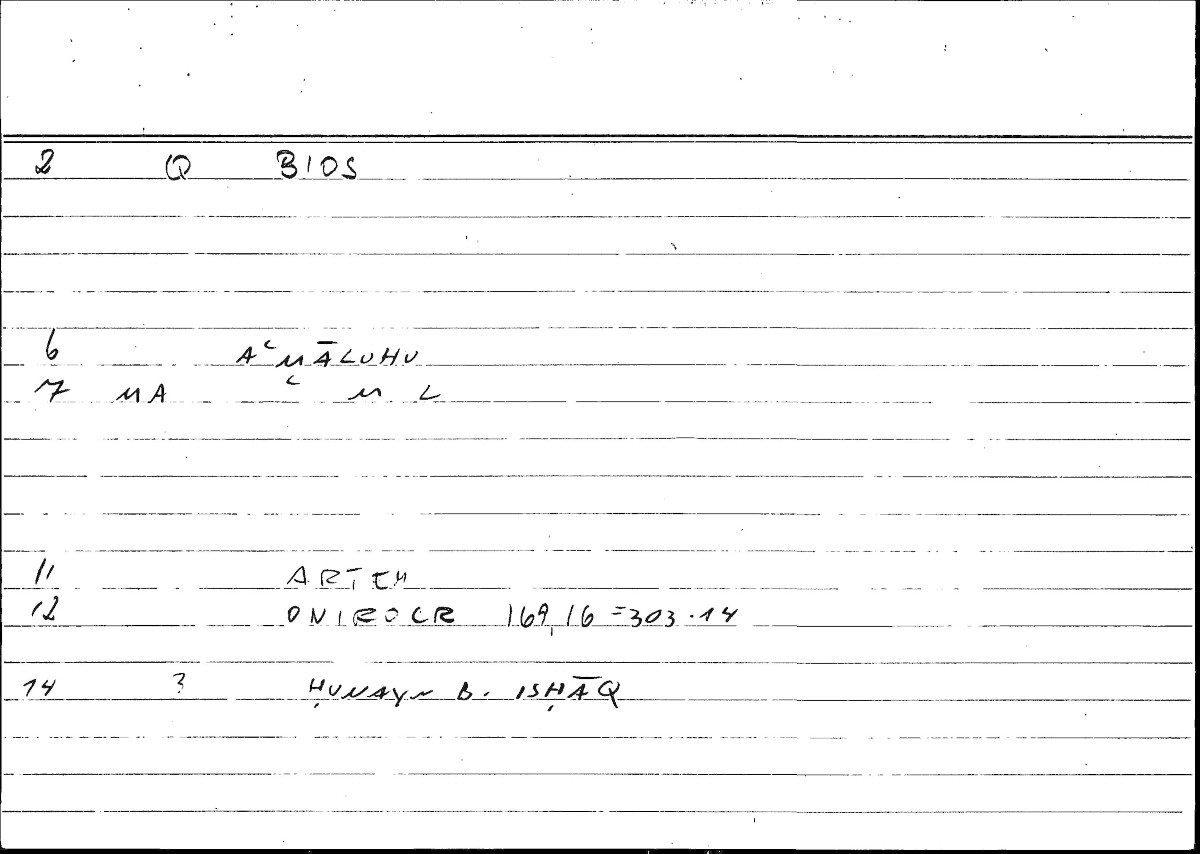 2 Q BIOS
6 AʿMĀLUHU
7 MA ʿ M L
11 ARTEM
12 ONIROCR 169,16 = 303.14
14 3 ḤUNAYN B. ISḤĀQ